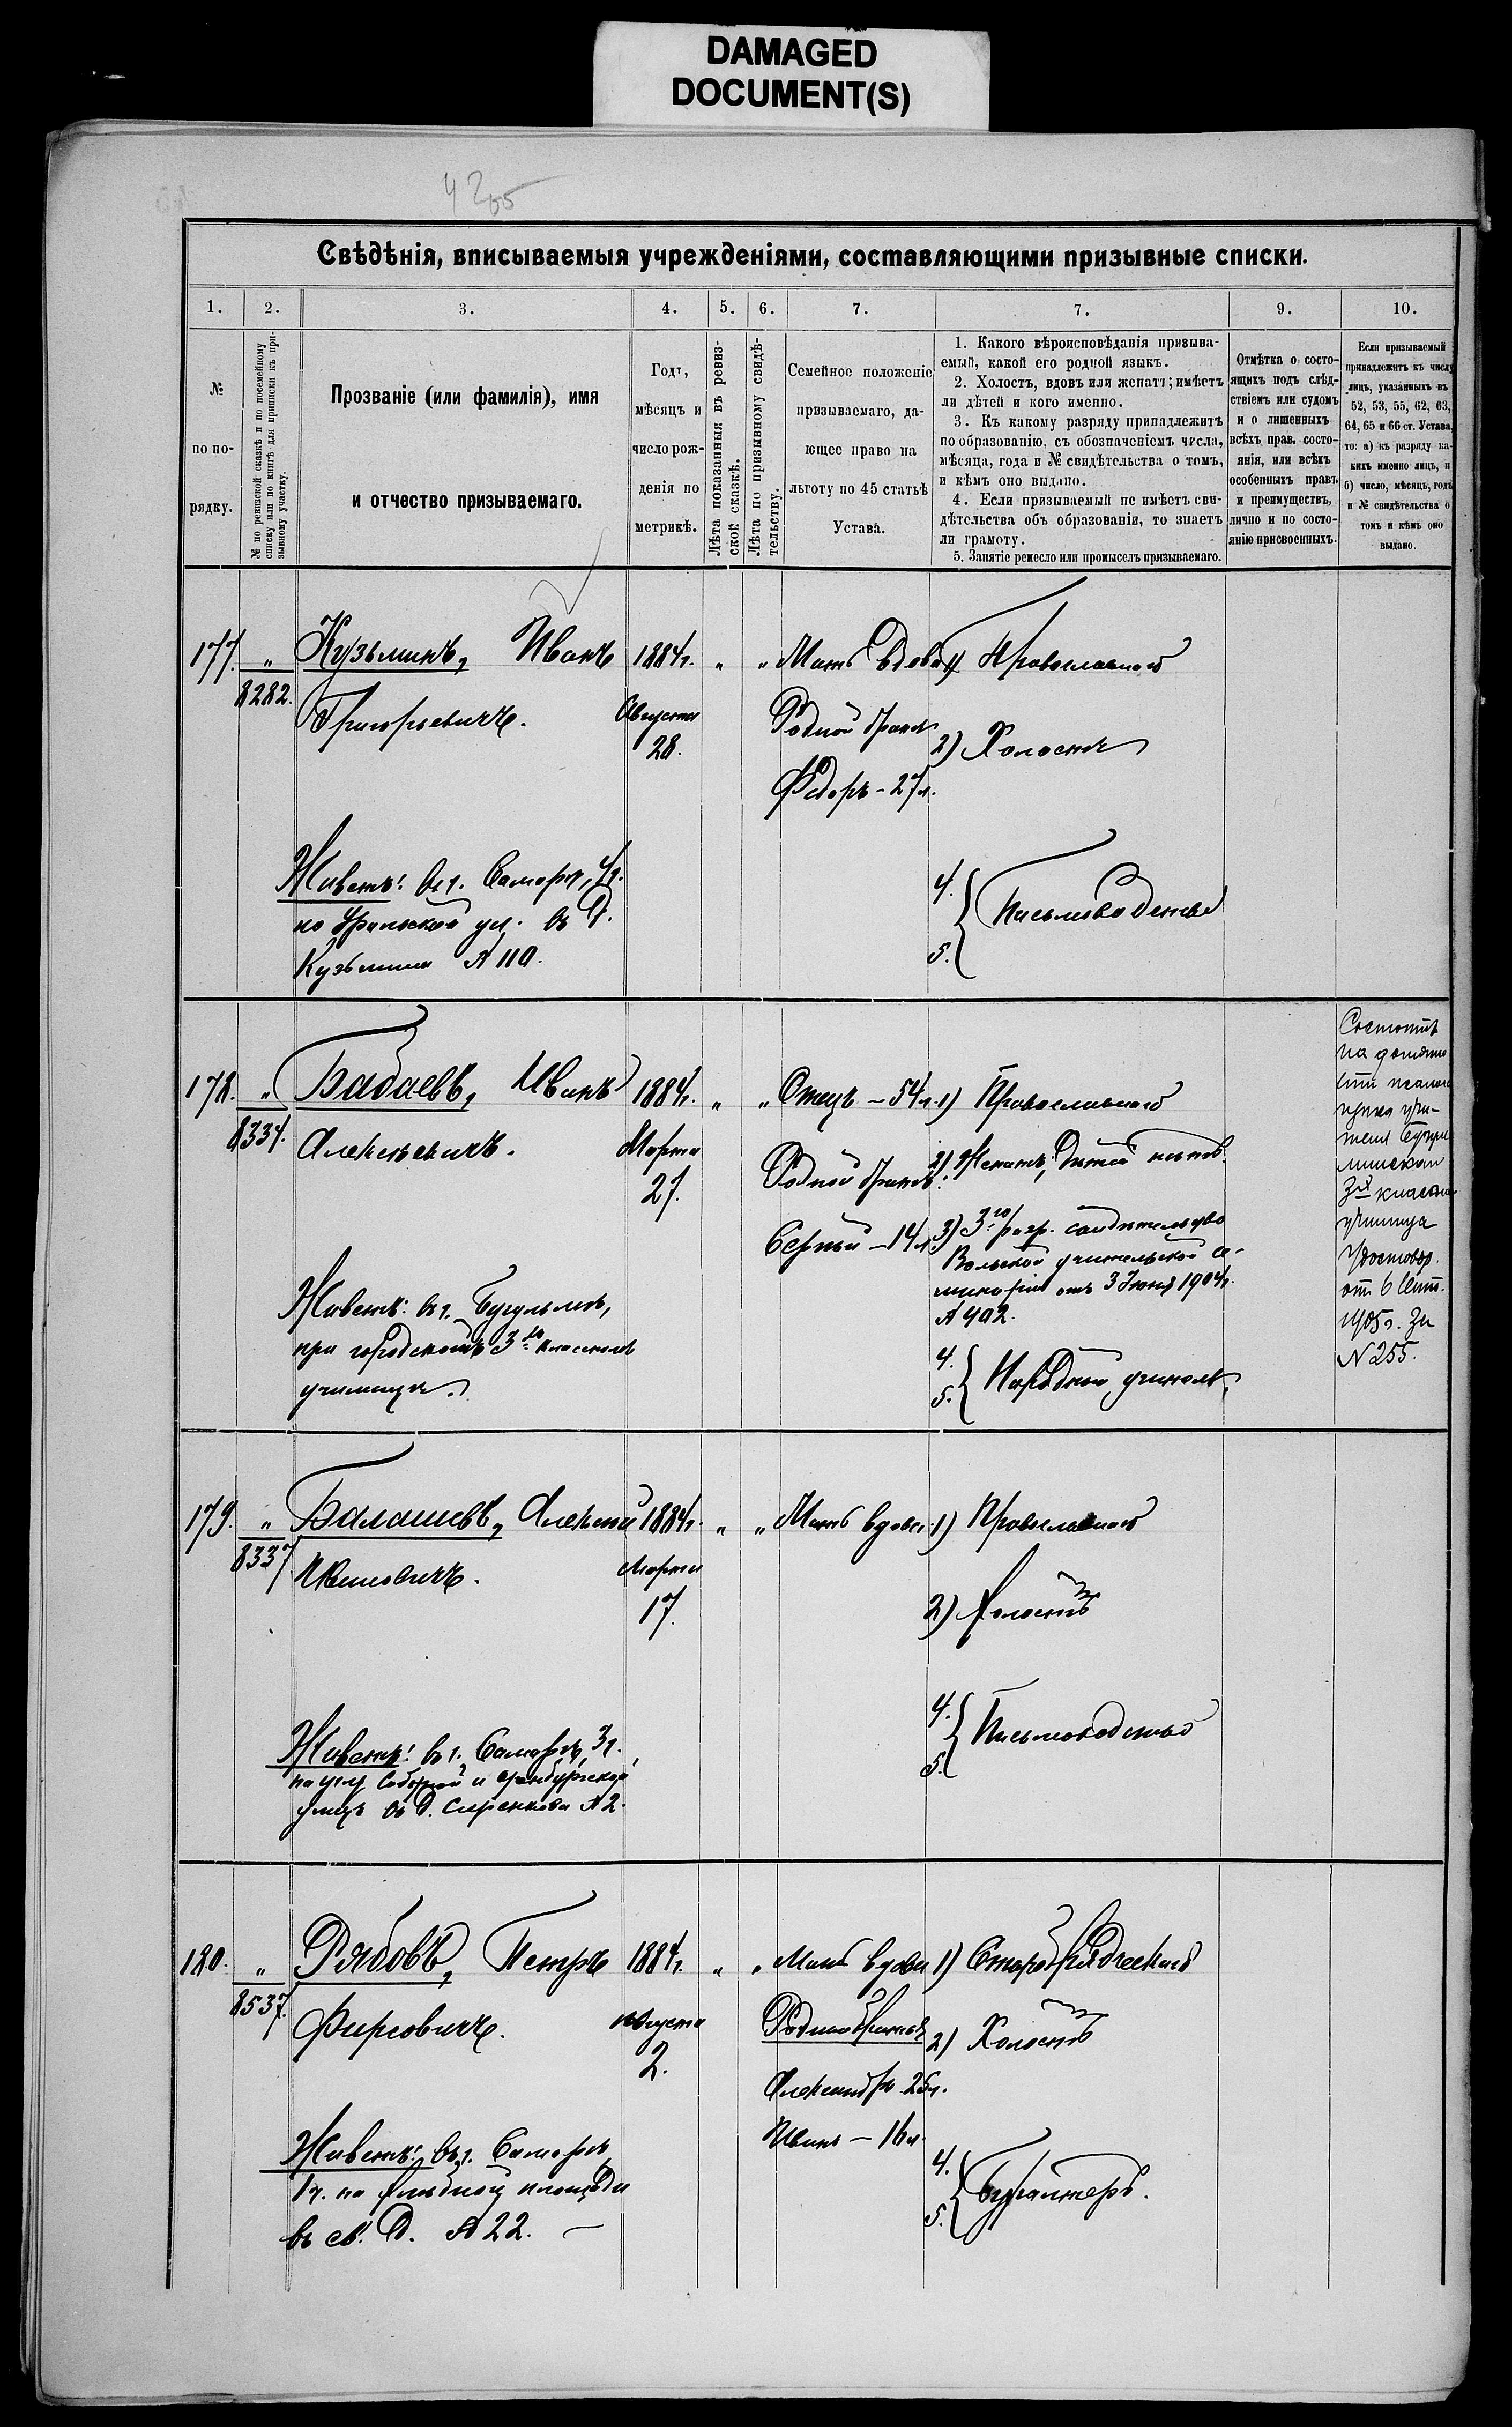 DAMAGED
DOCUMENT(S)
Свѣдѣнія, вписываемыя учрежденіями, составляющими призывные списки.
1. 2. 3. 4. 5. 6. 7. 7. 9. 10.
№
по по-
рядку.
№ по ревизской сказкѣ и по посемейному
списку или по книгѣ для приписки къ при-
зывному участку.
Прозваніе (или фамилія), имя
и отчество призываемаго.
Годъ,
мѣсяцъ и
число рож-
денія по
метрикѣ.
Лѣта показанныя въ ревиз-
ской сказкѣ.
Лѣта по призывному свидѣ-
тельству.
Семейное положеніе
призываемаго, да-
ющее право на
льготу по 45 статьѣ
Устава.
1. Какого вѣроисповѣданія призыва-
емый, какой его родной языкъ.
2. Холостъ, вдовъ или женатъ; имѣетъ
ли дѣтей и кого именно.
3. Къ какому разряду принадлежитъ
по образованію, съ обозначеніемъ числа,
мѣсяца, года и № свидѣтельства о томъ,
и кѣмъ оно выдано.
4. Если призываемый не имѣетъ сви-
дѣтельства объ образованіи, то знаетъ
ли грамоту.
5. Занятіе ремесло или промыселъ призываемаго.
Отмѣтка о состо-
ящихъ подъ слѣд-
ствіемъ или судомъ
и о лишенныхъ
всѣхъ прав. состо-
янія, или всѣхъ
особенныхъ правъ
и преимуществъ,
лично и по состо-
янію присвоенныхъ.
Если призываемый
принадлежитъ къ числу
лицъ, указанныхъ въ
52, 53, 55, 62, 63,
64, 65 и 66 ст. Устава,
то: а) къ разряду ка-
кихъ именно лицъ, и
б) число, мѣсяцъ, годъ
и № свидѣтельства о
томъ и кѣмъ оно
выдано.
177. „ Кузьминъ, Иванъ 1884г. „ „ Мать вдова 1) Православнаго
8282. Григорьевичъ. Августа
28.
Родной братъ
Ѳедоръ - 27 л.
2) Холостъ
Живетъ: въ г. Самарѣ, 4ч.
по Уральской ул. въ д.
Кузьмина № 110.
4.
5. Письмоводство
178. „ Бабаевъ, Иванъ 1884г. „ „ Отецъ - 54 л. 1) Православнаго
8334. Алексѣевичъ. Марта
27.
Родной братъ:
Сергѣй - 14 л.
2) Женатъ, дѣтей нѣтъ.
3) 3го разр. свидѣтельство
Вольской учительской се-
минаріи отъ 3 Іюня 1904г.
№ 402.
4.
5. Народный учитель.
Живетъ: въ г. Бугульмѣ,
при городскомъ 3хъ классномъ
училищѣ.
Состоитъ
на должно
сти помощ
ника учи-
теля Бугуль
минскаго
3х класснаго
училища
удостовѣр.
от 6 Сент.
1905 г. за
№ 255.
179. „ Балашевъ, Алексѣй 1884г. „ „ Мать вдова 1) Православнаго
8337 Ивановичъ. Марта
17.
2) Холостъ
Живетъ: въ г. Самарѣ, 3ч.
на углу Соборной и Оренбургской
улицъ въ д. Сиренкова № 2.
4.
5. Письмоводство
180. „ Рябовъ, Петръ 1884г. „ „ Мать вдова 1) Старообрядческаго
8537. Фирсовичъ. Августа
2.
Родные братья
Александръ 25 л.
Иванъ - 16 л.
2) Холостъ
Живетъ: въ г. Самарѣ,
1ч. на Хлѣбной площади
въ св. д. № 22. —
4.
5. Бухгалтеръ.